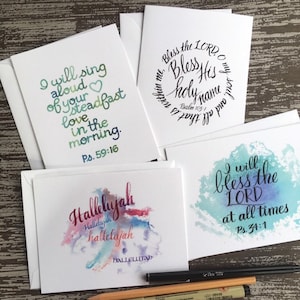 I will sing
aloud
of your
steadfast
love
in the
morning.
Ps. 59:16
Bless the LORD, O my soul, and all that is within me
Bless
His
holy
name
Psalm 103:1
Hallelujah
hallelujah
HALLELUJAH
I will
bless the
LORD
at all times
Ps. 34:1